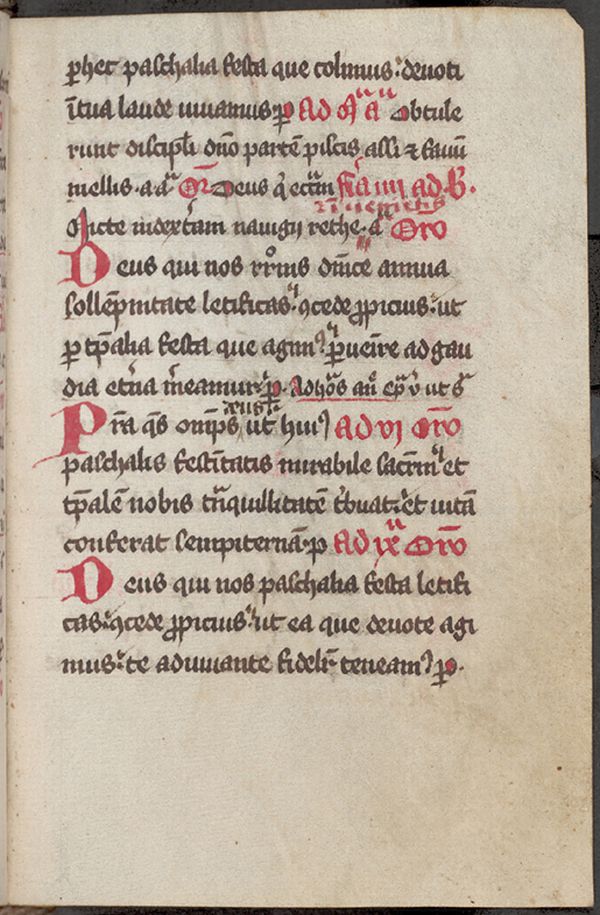 p hec paschalia festa que colimus. deuoti
ī tua laude uiuamus. p Ad mͣ aͣ Obtule
runt discipli dn̄o partē piscis assi ⁊ fauū
mellis. a aͣ Or̄ Deus q̇ eccl̄iam fr̄a iiii ad. b.
Mitte in dext̄am nauigij rethe. aͣ Oro
Deus qui nos rr̄onis dn̄ice annua
sollēpnitate letificas. ꝯcede ꝓpicius. ut
ꝑ tp̄alia festa que agimꝰ. ꝑuenire ad gau
dia et̄na m̄eamur. ꝑ. Ad hōs
Pr̄a q̄s om̄ps ut huiꝰ Ad vi Or̄o
paschalis festiuitatis mirabile sacr̄m. et
tp̄alē nobis tn̄quillitatē t̄buat. et uitā
conferat sempiternā. p Ad ix Or̄o
Deus qui nos paschalia festa letifi
cas. ꝯcede ꝓpicius. ut ea que deuote agi
mus. te adiuuante fidelit̄ teneamꝰ. ꝑ.